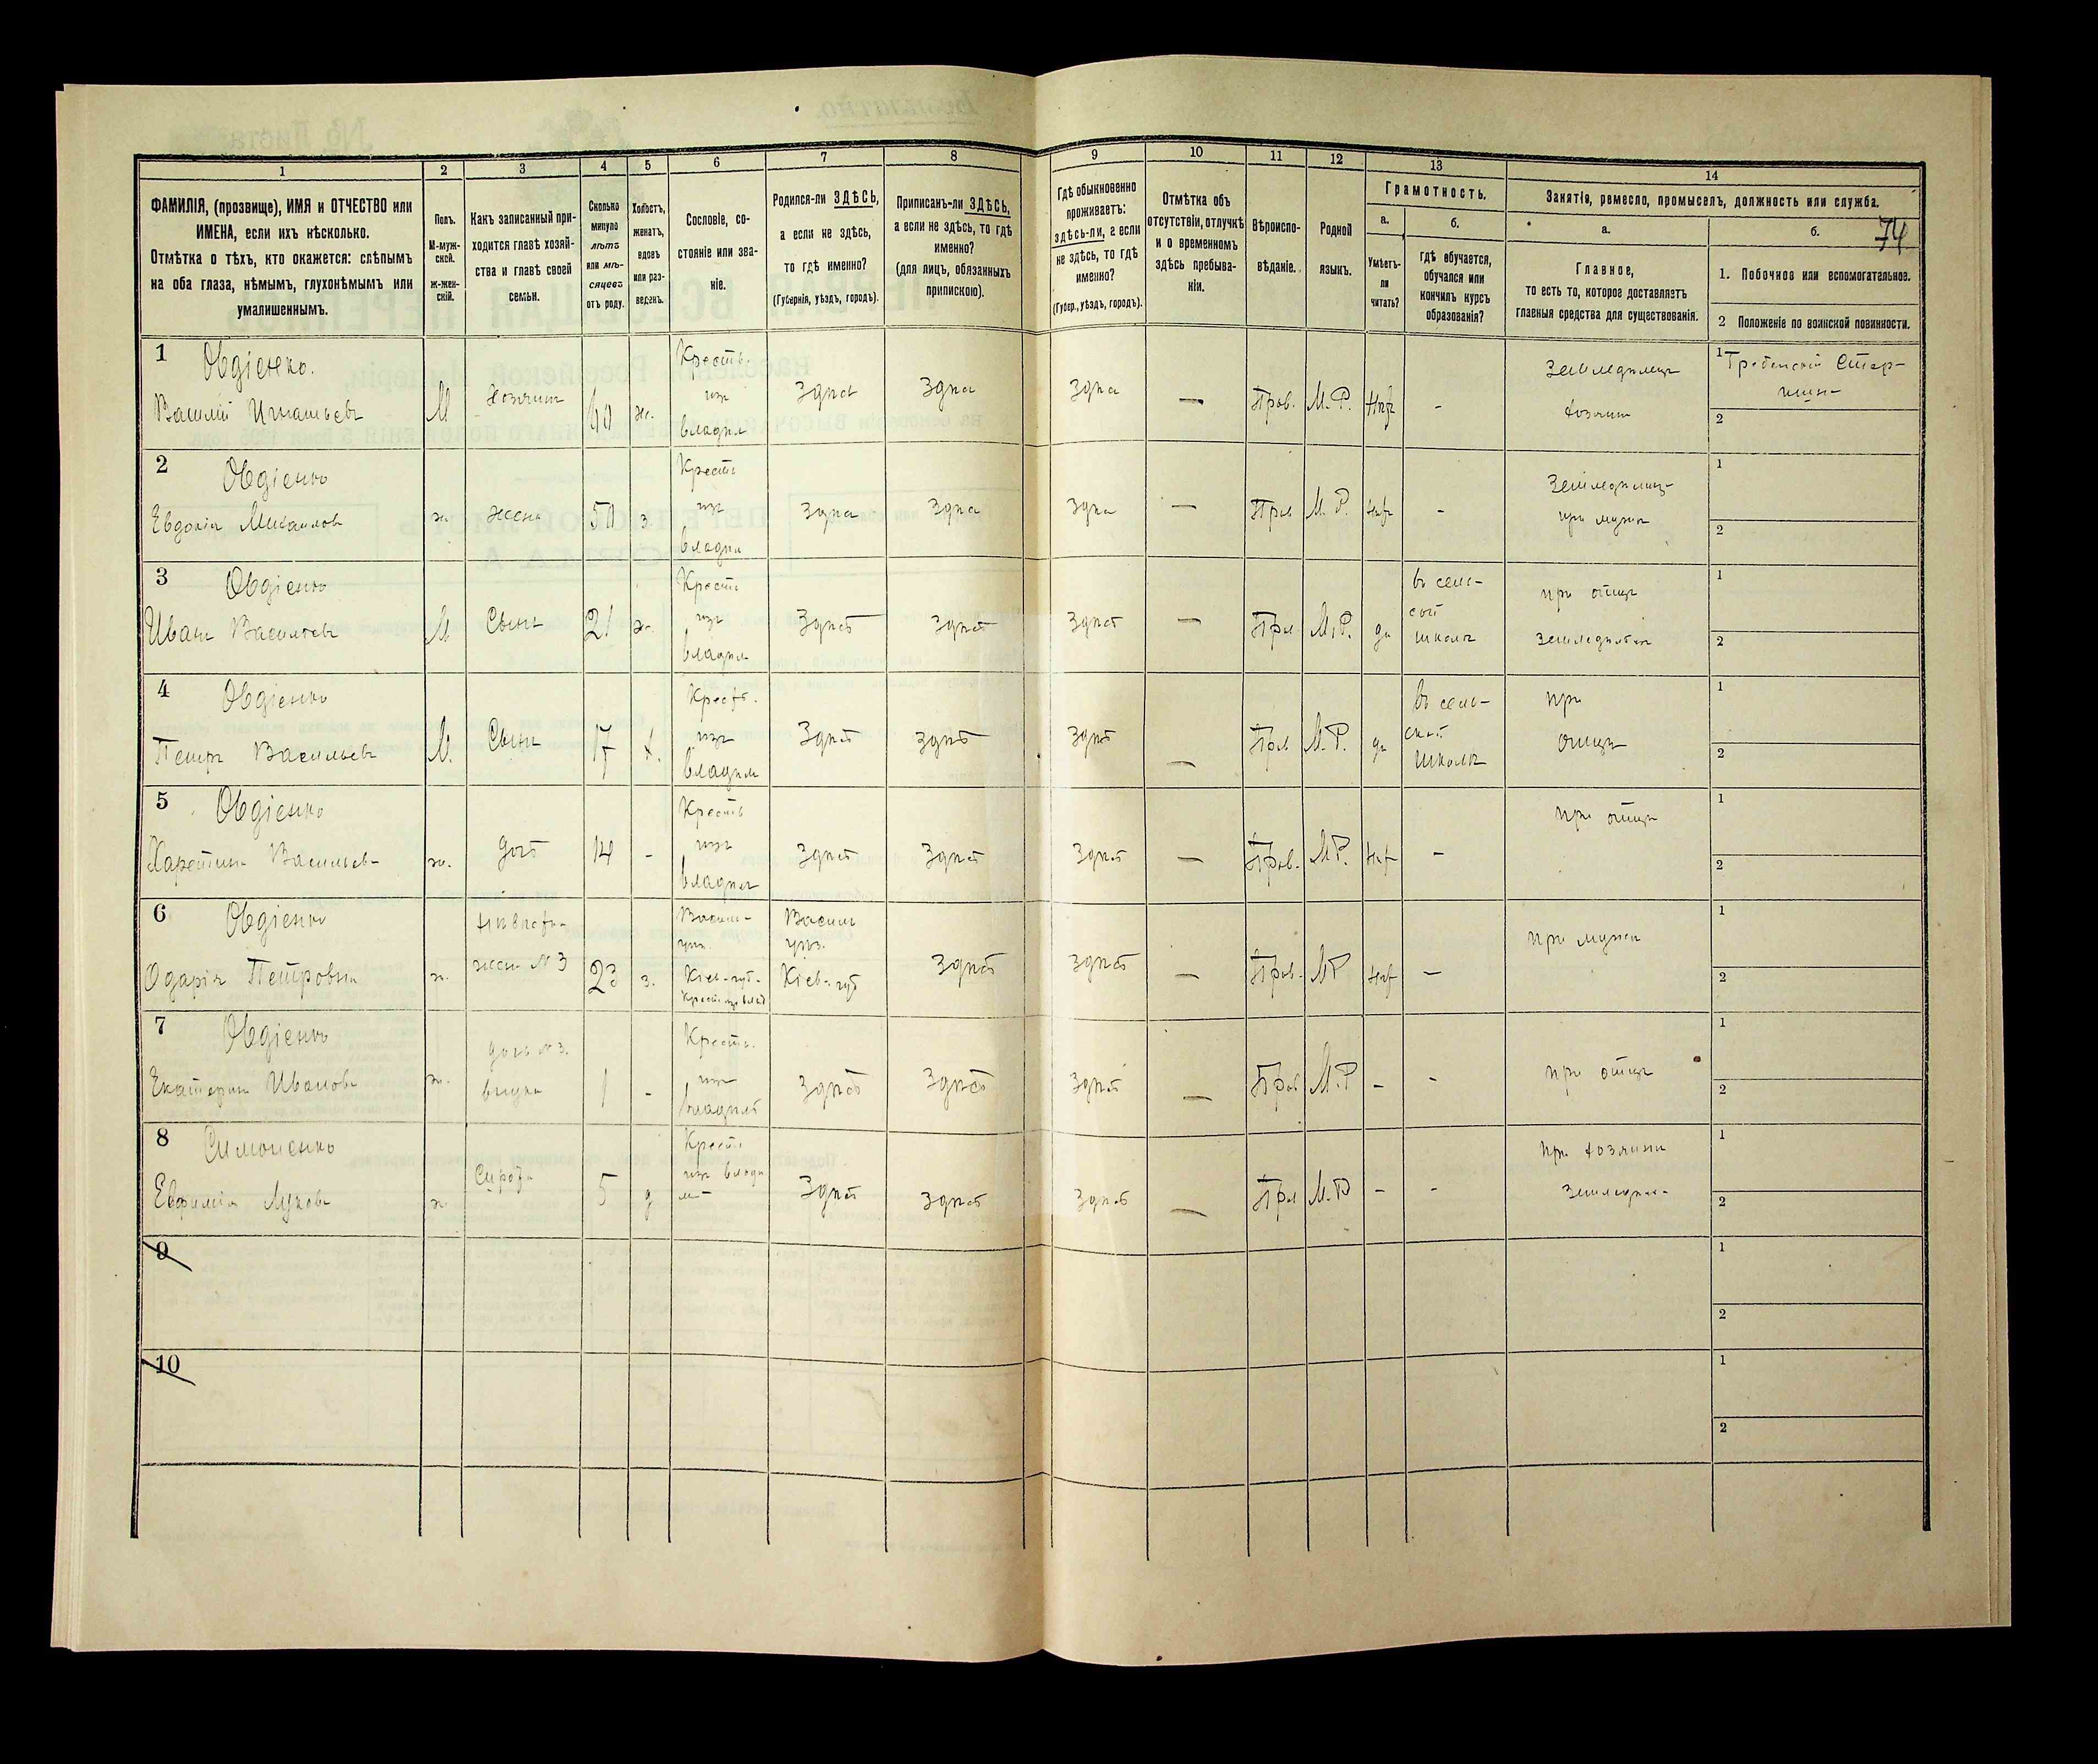 74
1
2
3
4
5
6
7
8
9
10
11
12
13
14
ФАМИЛІЯ, (прозвище), ИМЯ и ОТЧЕСТВО или
ИМЕНА, если ихъ нѣсколько.
Отмѣтка о тѣхъ, кто окажется: слѣпымъ
на оба глаза, нѣмымъ, глухонѣмымъ или
умалишеннымъ.
Полъ.
М-муж-
ской.
ж-жен-
скій.
Какъ записанный при-
ходится главѣ хозяй-
ства и главѣ своей
семьи.
Сколько
минуло
лѣтъ
или мѣ-
сяцевъ
отъ роду.
Холостъ,
женатъ,
вдовъ
или раз-
веденъ.
Сословіе, со-
стояніе или зва-
ніе.
Родился-ли ЗДѢСЬ,
а если не здѣсь,
то гдѣ именно?
(Губернія, уѣздъ, городъ).
Приписанъ-ли ЗДѢСЬ,
а если не здѣсь, то гдѣ
именно?
(для лицъ, обязанныхъ
припискою).
Гдѣ обыкновенно
проживаетъ:
здѣсь-ли, а если
не здѣсь, то гдѣ
именно?
(Губер., уѣздъ, городъ).
Отмѣтка объ
отсутствіи, отлучкѣ
и о временномъ
здѣсь пребыва-
ніи.
Вѣроиспо-
вѣданіе.
Родной
языкъ.
Грамотность.
а.
Умѣетъ-
ли
читать?
б.
Гдѣ обучается,
обучался или
кончилъ курсъ
образованія?
Занятія, ремесло, промыселъ, должность или служба.
а.
Главное,
то есть то, которое доставляетъ
главныя средства для существованія.
б.
1. Побочное или вспомогательное.
2 Положеніе по воинской повинности.
1
Овдіенко.
Василій Игнатьевъ
М
Хозяинъ
ж.
Крестья.
изъ
владѣл
—
Прав.
М.Р.
-
Земледѣлец
хозяин
1
2
2
Овдіенко
Евдокія Михаилов
ж.
жена
50
з
Крестья
изъ
владѣл
—
Прав
М.Р.
-
Земледѣлец-
при мужѣ
1
2
3
Овдіенко
Иванъ Васильевъ
М
Сынъ
21
ж.
Крестья
изъ
владѣл
здѣсь
здѣсь
здѣсь
—
Прав
М.Р.
да
въ сель-
ской
школѣ
при отцѣ
1
2
4
Овдіенко
Петръ Васильевъ
М.
Сынъ
17
х.
Крест.
изъ
владѣл
здѣсь
здѣсь
здѣсь
—
Прав
М.Р.
да
въ сель-
ской
школѣ
при
отцѣ
1
2
5
Овдіенко
Васильев-
ж.
дочь
14
-
Крестья
изъ
владѣл
здѣсь
здѣсь
здѣсь
—
Прав.
М.Р.
—
при отцѣ
1
2
6
Овдіенко
Одарія Петровна
ж.
невѣстка
жена №3
23
з.
Кіев. губ.
Кіев. губ
здѣсь
здѣсь
—
Прав.
МР
—
при мужѣ
1
2
7
Овдіенко
Екатерина Иванова
ж.
дочь №3.
внучка
1
-
Крестья.
изъ
владѣл
здѣсь
здѣсь
здѣсь
—
Прав
М.Р
-
-
при отцѣ
1
2
8
Симоненко
Евфимія
ж.
Сирота
5
д
Крестья
изъ владѣ
здѣсь
здѣсь
здѣсь
—
Прав
М.Р
-
-
при хозяинѣ
1
2
9
1
2
10
1
2